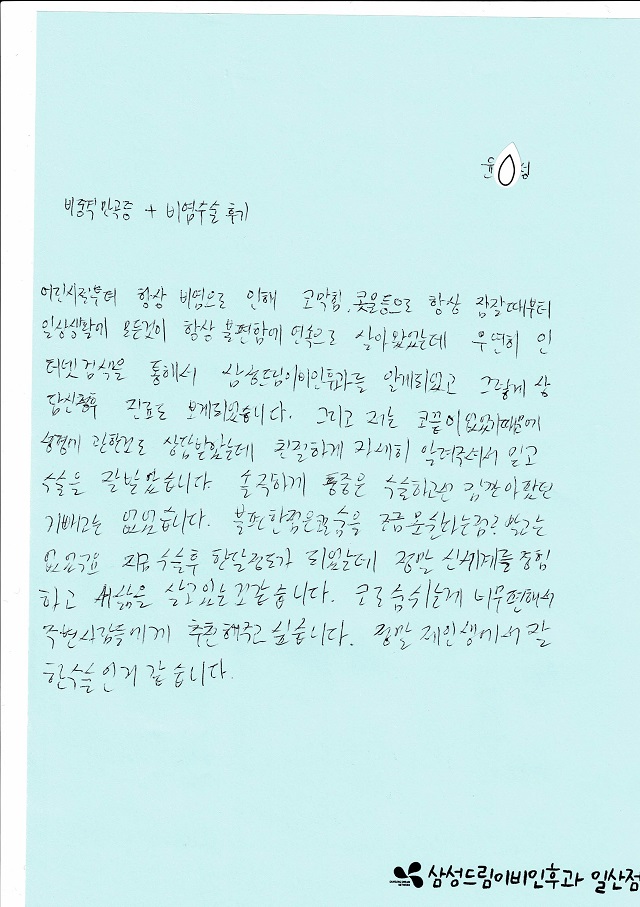 윤 성
비중격만곡증 + 비염수술 후기
어린시절부터 항상 비염으로 인해 코막힘, 콧물등으로 항상 잠잘때부터
일상생활에 모든것이 항상 불편함에 연속으로 살아왔었는데 우연히 인
터넷검색을 통해서 삼성드림이비인후과를 알게되었고 그렇게 상
담신청후 진료도 보게되었습니다. 그리고 저는 코끝이 없었기때문에
성형에 관한것도 상담받았는데 친절하게 자세히 알려주셔서 믿고
수술을 잘받았습니다 솔직하게 통증은 수술하고난 잠깐아팠던
기빼고는 없었습니다. 불편한점은 코숨을 조금못쉰다는점? 밖에는
없었구요 지금 수술후 한달정도가 되었는데 정말 신세계를 경험
하고 새삶을 살고있는것같습니다. 코로숨쉬는게 너무편해서
주변사람들에게 추천해주고 싶습니다. 정말 제인생에서 잘
한수술인거 같습니다.
삼성드림이비인후과 일산점